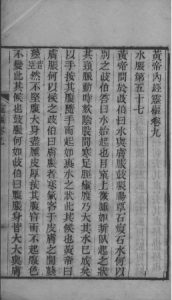 黃帝內經靈樞卷九
水脹第五十七
黃帝問於岐伯曰水與膚脹鼓脹腸覃石瘕石水何以
別之岐伯答曰水始起也目窠上微腫如新臥起之狀
其頸脈動時欬陰股間寒足脛瘇腹乃大其水已成矣
以手按其腹隨手而起如裹水之狀此其候也黃帝曰
膚脹何以候之岐伯曰膚脹者寒氣客于皮膚之間
然不堅腹大身盡腫皮厚按其腹窅而不起腹色
不變此其候也鼓脹何如岐伯曰腹脹身皆大大與膚